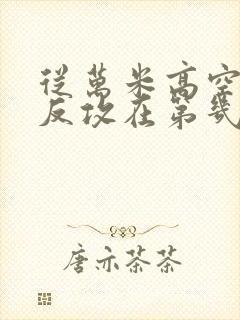 從萬米高空
反攻在第幾
唐亦茶茶